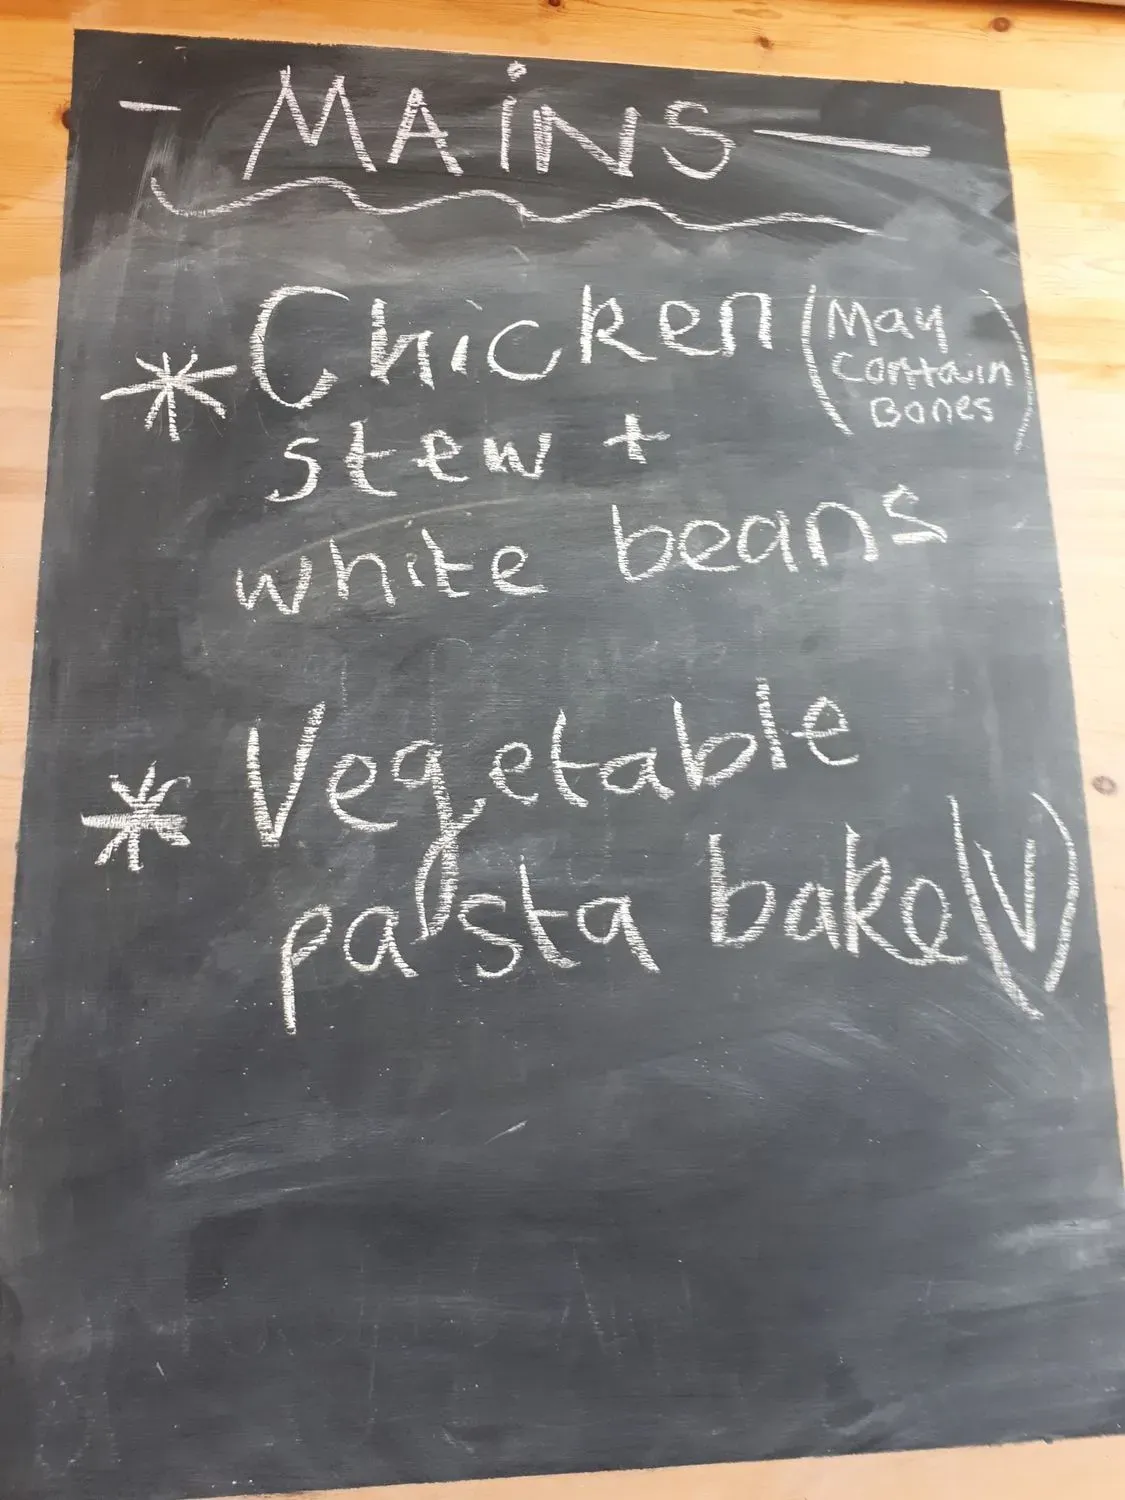 - MAiNS -
* Chicken (May Contain Bones)
stew +
white beans
* Vegetable
pasta bake (V)